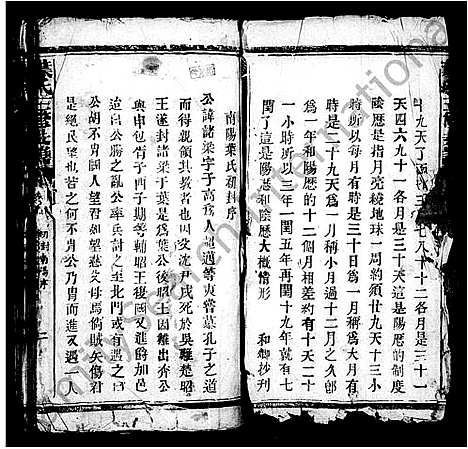 十九天了 五七八十十二各月是三十一
天四六九十一各月是三十天這是陽歷的制度
陰歷是指月亮繞地球一周約須廿九天十三小
時所以每月有時是三十日爲一月稱爲大月有
時二十九天爲一月稱小月過十二月之久卽
爲一年和陽歷的十二個月相差約有十天二十
一小時所以三年一閏五年再閏十九年就有七
閏了這是陽歷和陰歷大槪情形
和卿抄刊
南陽葉氏初封序
公諱諸梁字子高爲人通等夷嘗慕孔子之道
而得親領其敎者也因父沈尹戌死於吳難楚昭
王遂封諸梁于葉是爲葉公後昭王因難出奔公
與申包胥子西子期等輔昭王復國又進爵加邑
迨白公勝之亂公率兵討之至北門或有遇之曰
公胡不冑國人望君如望慈父母焉倘賊矢傷君
是絕民望也若之何不冑公乃冑而進又遇一人
初封南陽序